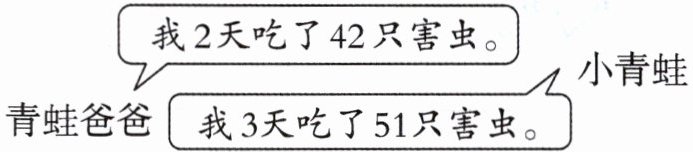 我2天吃了42只害虫。
小青蛙
青蛙爸爸
我3天吃了51只害虫。